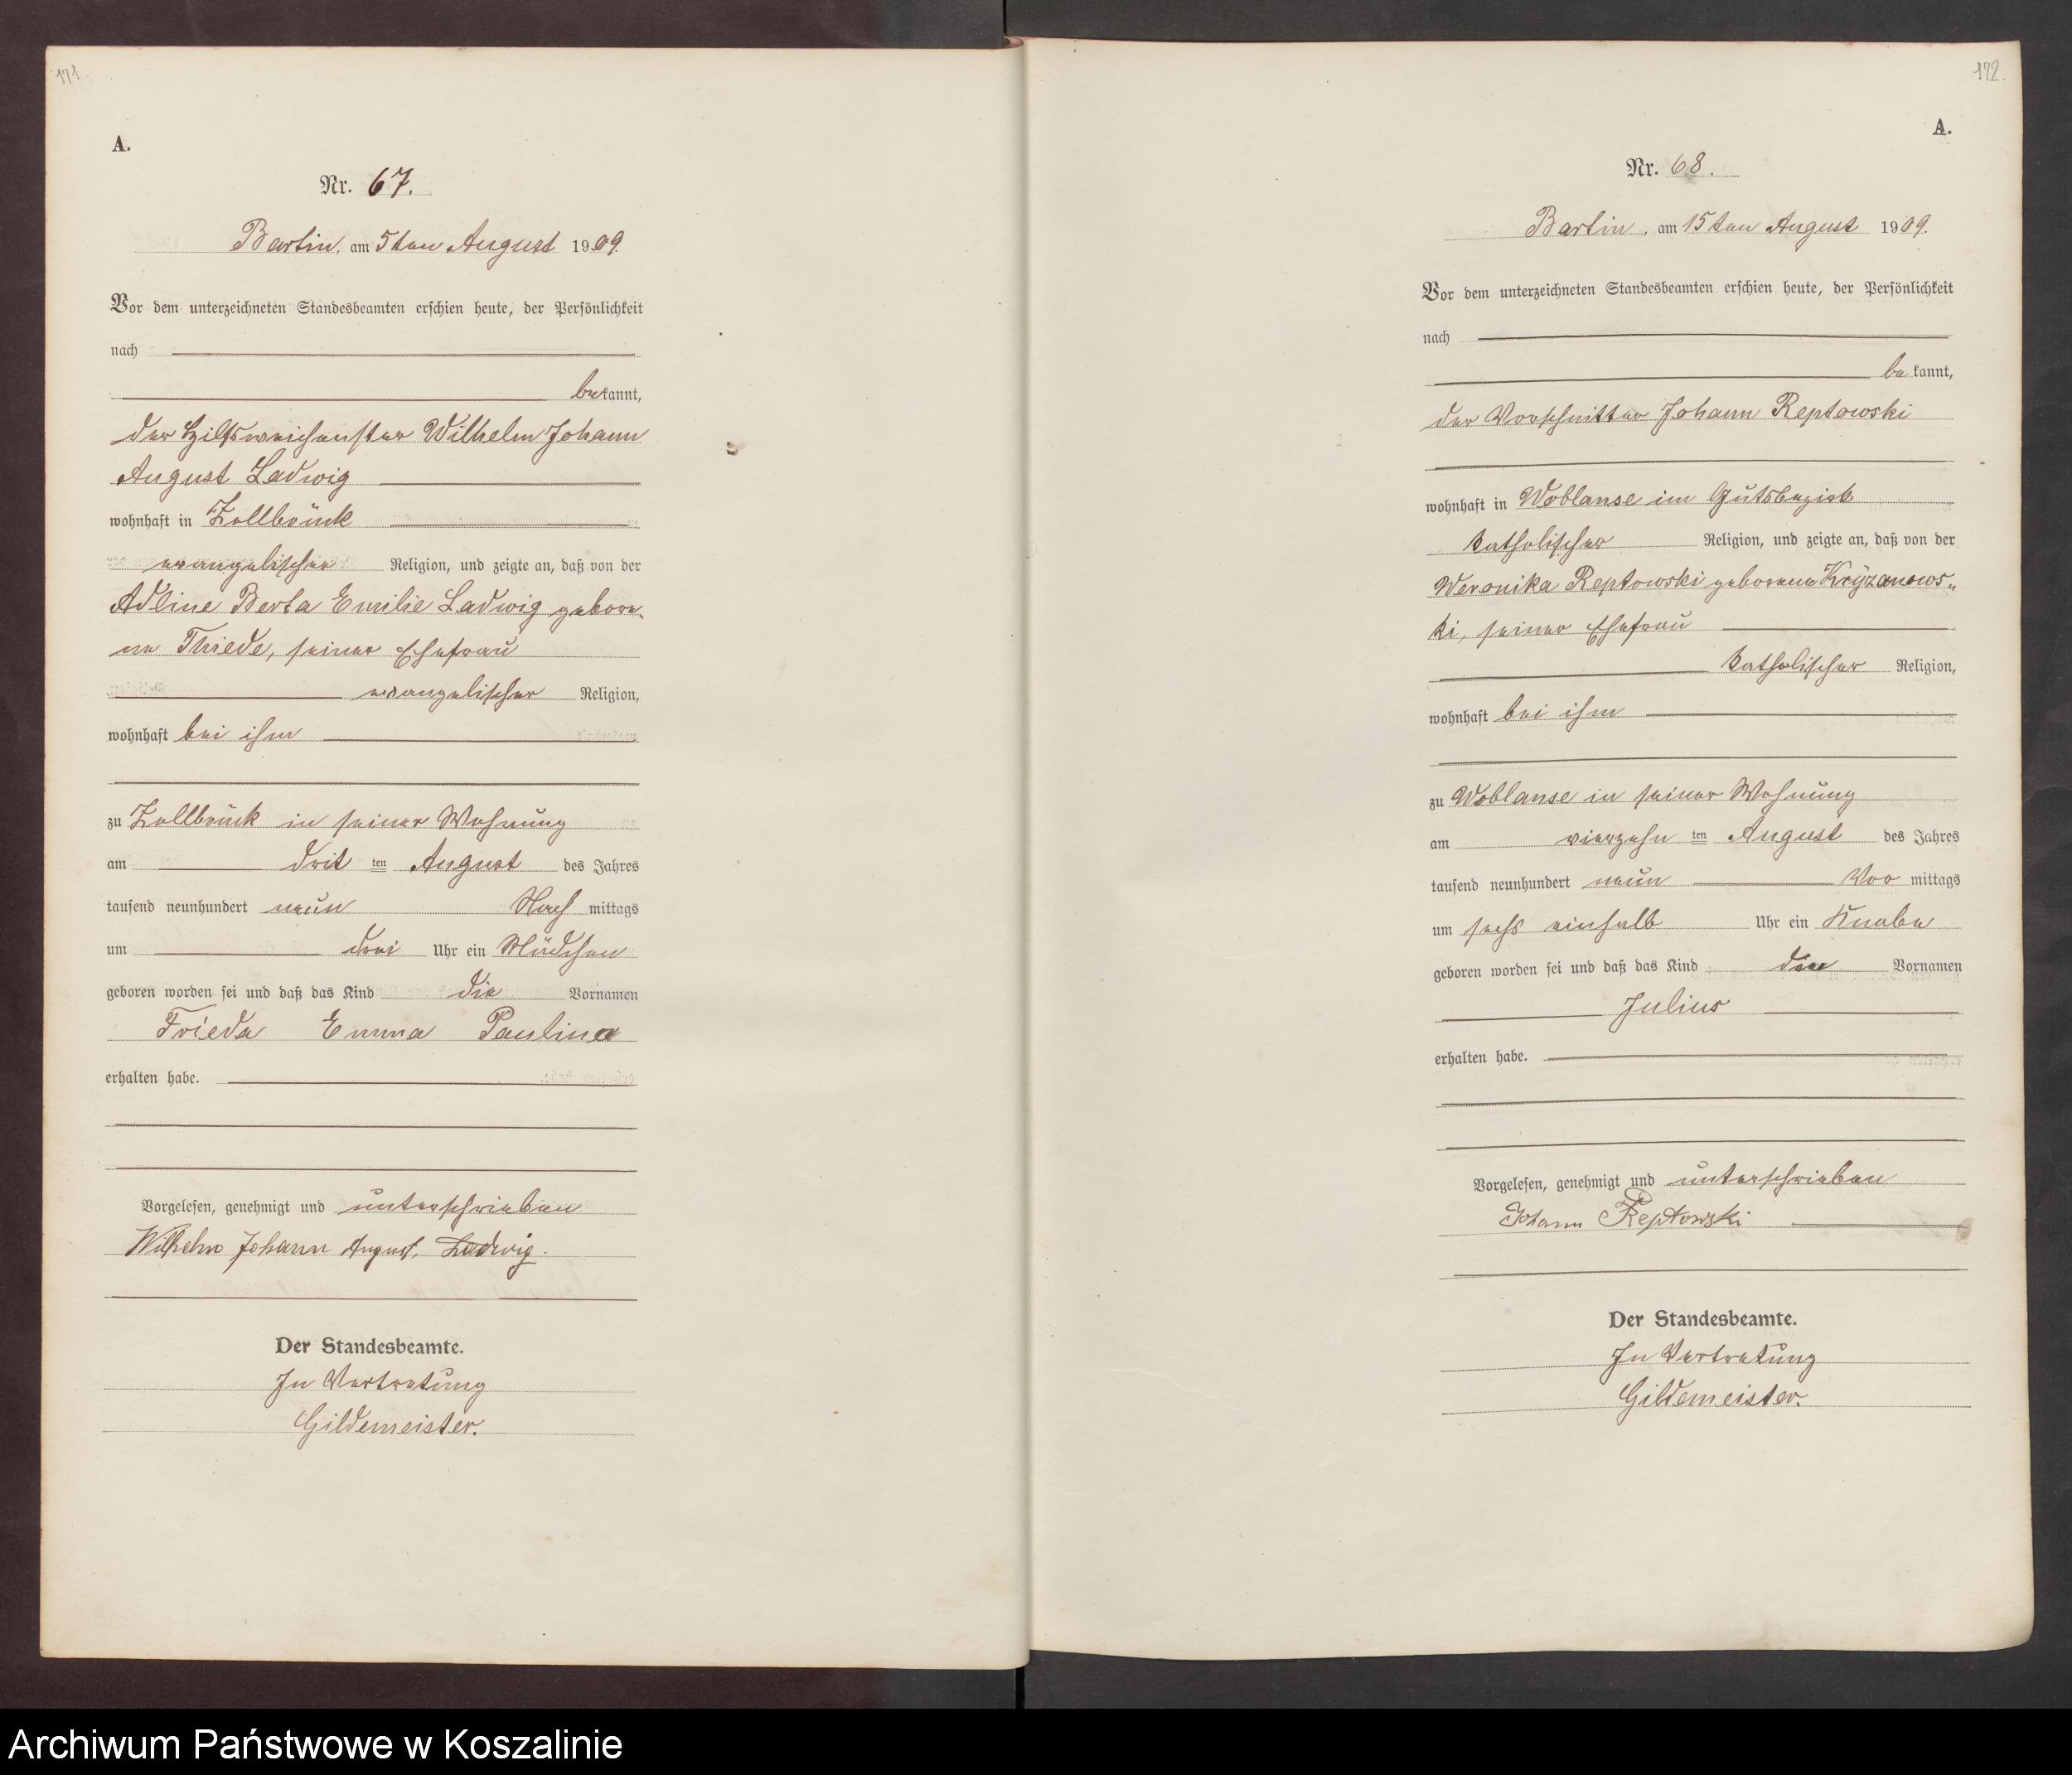 171.
A.
Nr. 67.
Bartin, am 5ten August 1909.
Vor dem unterzeichneten Standesbeamten erschien heute, der Persönlichkeit
nach
bekannt,
der Hilfsweichenster Wilhelm Johann
August Ladwig
wohnhaft in Zollbrück
evangelischer Religion, und zeigte an, daß von der
Adline Berta Emilie Ladwig gebore-
ne Thiede, seiner Ehefrau
evangelischer Religion,
wohnhaft bei ihm
zu Zollbrück in seiner Wohnung
am drit ten August des Jahres
tausend neunhundert neun Nach mittags
um drei Uhr ein Mädchen
geboren worden sei und daß das Kind die Vornamen
Frieda Emma Pauline
erhalten habe.
Vorgelesen, genehmigt und unterschrieben
Wilhelm Johann August Ladwig.
Der Standesbeamte.
In Vertretung
Gildemeister.
172.
A.
Nr. 68.
Bartin, am 15ten August 1909.
Vor dem unterzeichneten Standesbeamten erschien heute, der Persönlichkeit
nach
bekannt,
der Vorschnitter Johann Reptowski
wohnhaft in Woblanse im Gutsbezirk
katholischer Religion, und zeigte an, daß von der
Weronika Reptowski geborene Kryzanows-
ki, seiner Ehefrau
katholischer Religion,
wohnhaft bei ihm
zu Woblanse in seiner Wohnung
am vierzehn ten August des Jahres
tausend neunhundert neun Vor mittags
um sechs einhalb Uhr ein Knabe
geboren worden sei und daß das Kind den Vornamen
Julius
erhalten habe.
Vorgelesen, genehmigt und unterschrieben
Johann Reptowski
Der Standesbeamte.
In Vertretung
Gildemeister.
Archiwum Państwowe w Koszalinie